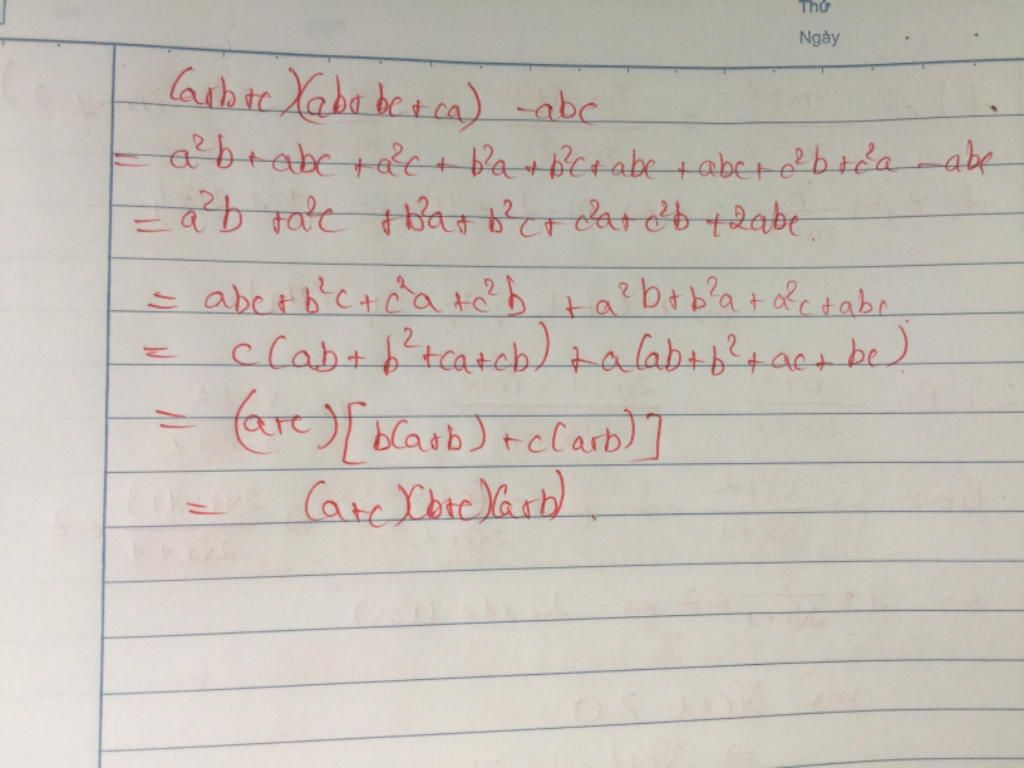 Thứ
Ngày
(a+b+c)(ab+bc+ca) -abc
= a²b + abc + a²c + b²a + b²c + abc + abc + c²b + c²a - abc
= a²b + a²c + b²a + b²c + c²a + c²b + 2abc.
= abc + b²c + c²a + c²b + a²b + b²a + a²c + abc.
= c(ab + b² + ca + cb) + a(ab + b² + ac + bc)
= (a+c)[b(a+b) + c(a+b)]
= (a+c)(b+c)(a+b).